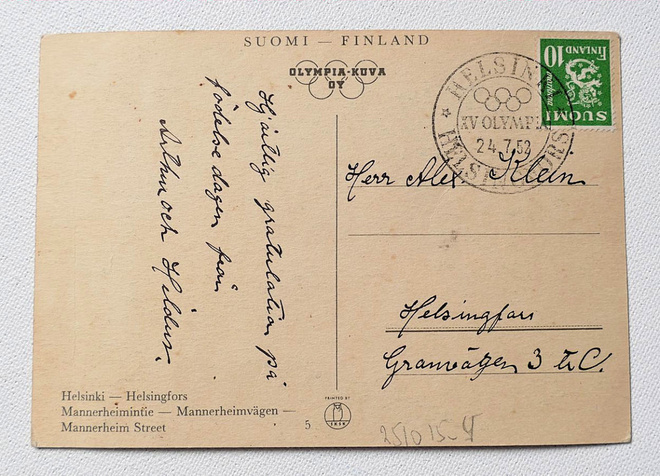 SUOMI — FINLAND
OLYMPIA-KUVA
OY
Hjärtlig gratulation på
födelsedagen från
Arthur och Hildur.
HELSINKI
XV OLYMPIA
24.7.52
HELSINGFORS
10
FINLAND
SUOMI
Herr Alex Klein
Helsingfors
Granvägen 3 C.
Helsinki — Helsingfors
Mannerheimintie — Mannerheimvägen —
Mannerheim Street
5
PRINTED BY